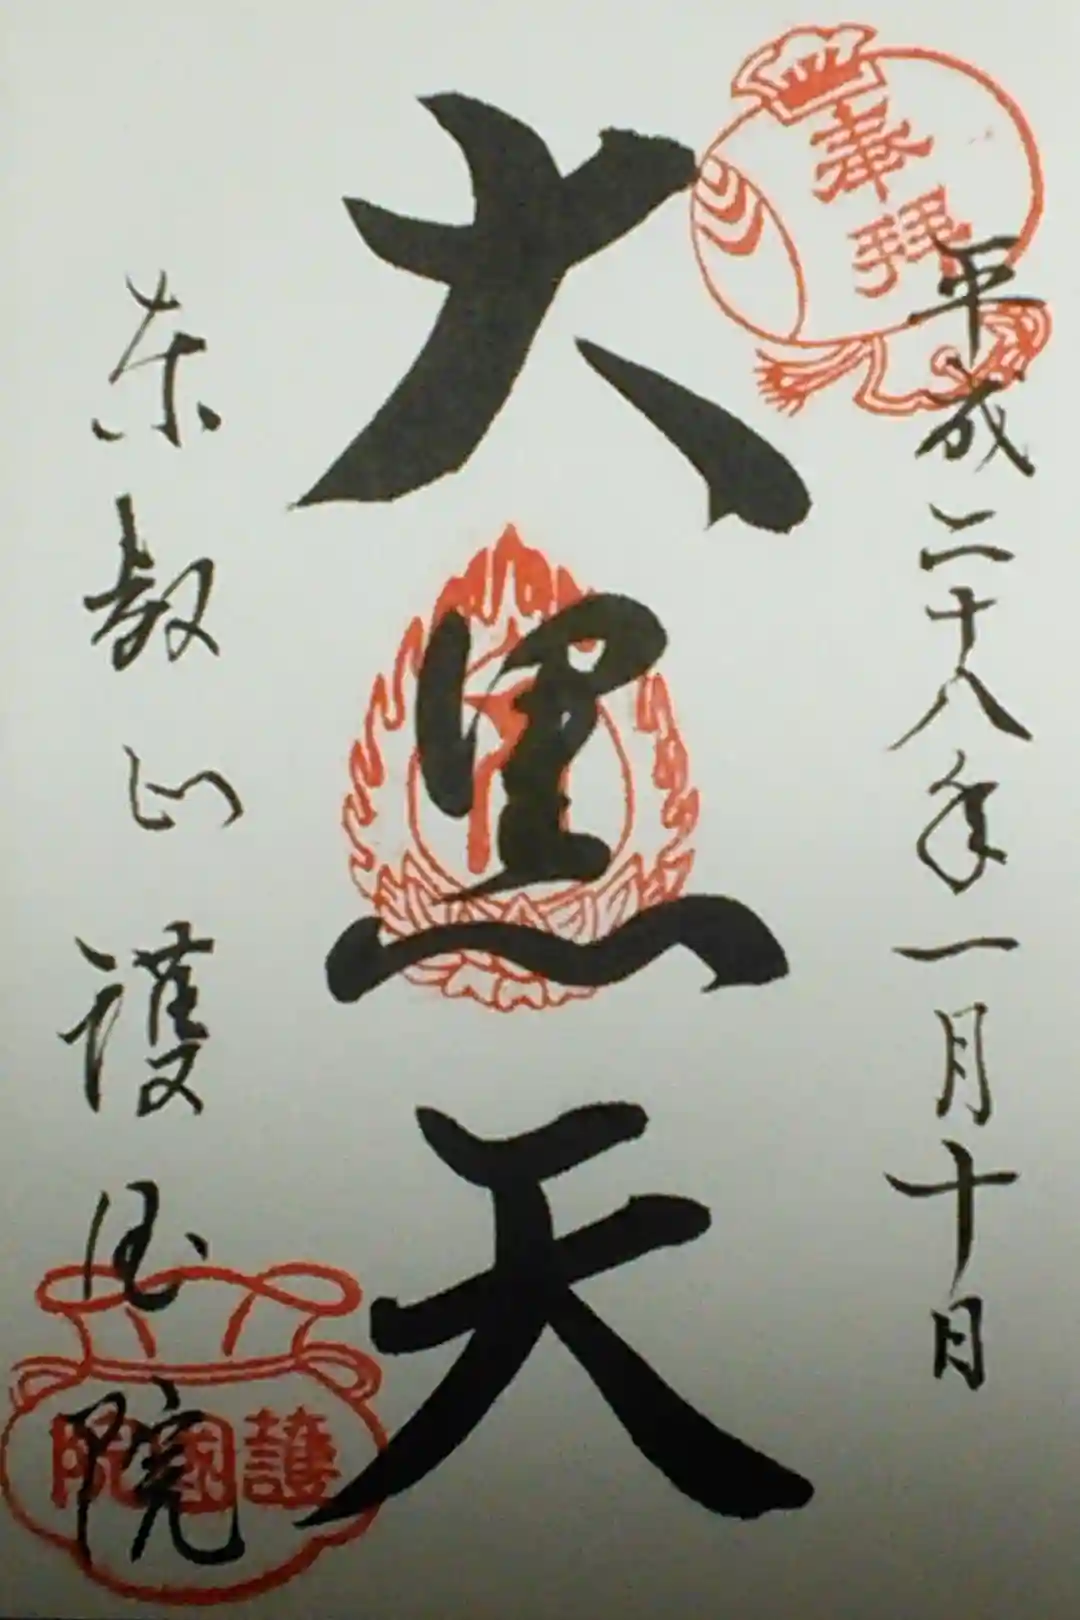 奉拝
平成二十八年一月十日
大黒天
東叡山護国院
護國院